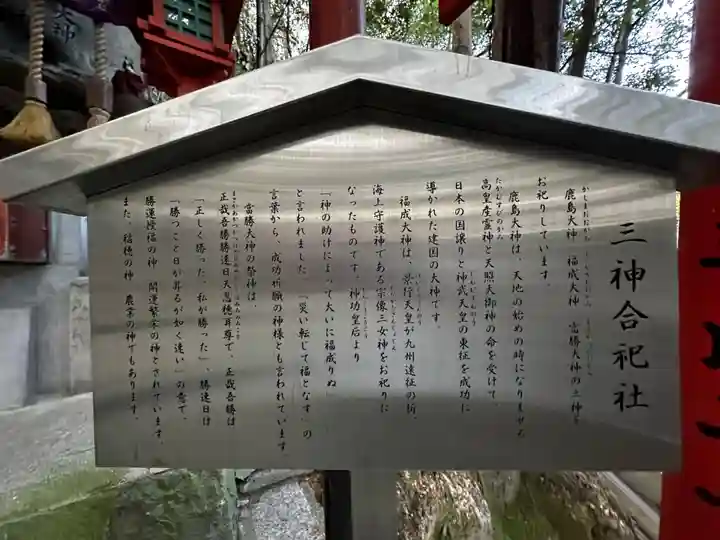 三神合祀社
鹿島大神 福成大神 富勝大神の三神を
お祀りしています。
鹿島大神は、天地の始めの時になりませる
高皇産霊神と天照大御神の命を受けて、
日本の国譲りと神武天皇の東征を成功に
導かれた建国の大神です。
福成大神は、景行天皇が九州遠征の折、
海上守護神である宗像三女神をお祀りに
なったものです。神功皇后より
「神の助けによって大いに福成りぬ」
と言われました。「災い転じて福となす」の
言葉から、成功祈願の神様とも言われています。
富勝大神の祭神は、
正哉吾勝勝速日天忍穂耳尊で、正哉吾勝は
「正しく勝った、私が勝った」、勝速日は
「勝つこと日が昇るが如く速い」の意で、
勝運授福の神 開運繁栄の神とされています。
また、稲穂の神 農業の神でもあります。
大神